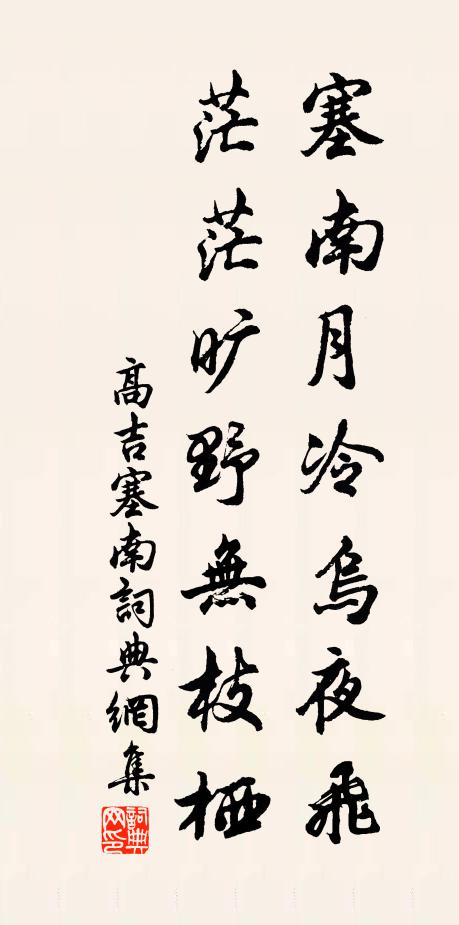 塞南月冷烏夜飛
茫茫旷野無枝栖
高吉塞南詞典網集
詞典网印